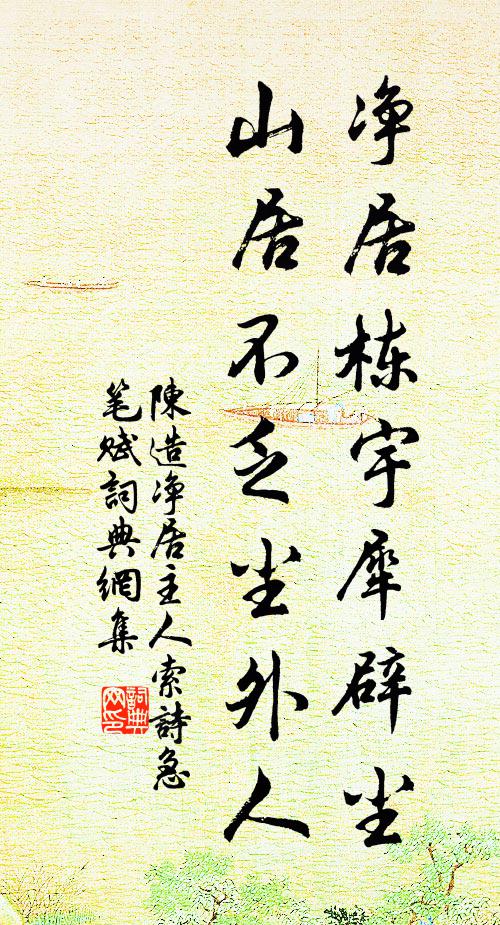 净居栋宇犀辟尘
山居不乏尘外人
陳造净居主人索詩急
笔赋詞典網集
詞典网印